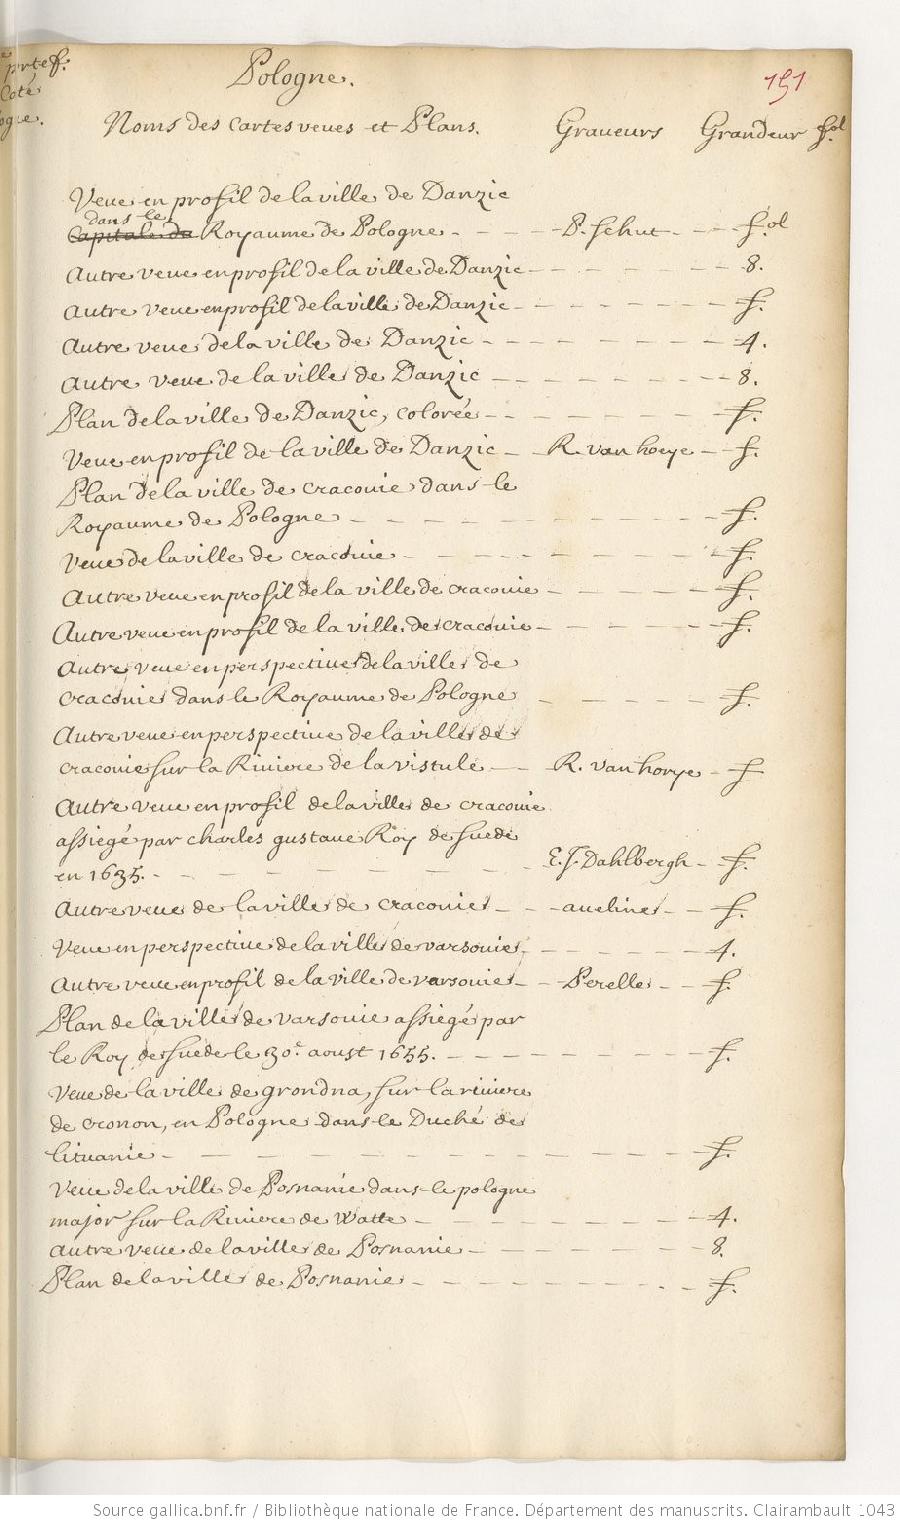 portef.
Coté
Pologne. 151
Noms des cartes veues et Plans. Graueurs Grandeur fol
Veue en profil de la ville de Danzic
dans le
Capitale du Royaume de Pologne - - - - P. Schut - - - fol
Autre veue en profil de la ville de Danzic - - - - - - - 8.
Autre veue en profil de la ville de Danzic - - - - - - - f.
Autre veue de la ville de Danzic - - - - - - - - 4.
Autre veue de la ville de Danzic - - - - - - - - 8.
Plan de la ville de Danzic, colorée - - - - - - - - f.
Veue en profil de la ville de Danzic - - R. van hoeye - f.
Plan de la ville de cracouie dans le
Royaume de Pologne - - - - - - - - - - f.
Veue de la ville de cracouie - - - - - - - - - f.
Autre veue en profil de la ville de cracouie - - - - - - f.
Autre veue en profil de la ville de cracouie - - - - - - f.
Autre veue en perspectiue de la ville de
cracouie dans le Royaume de Pologne - - - - - - f.
Autre veue en perspectiue de la ville de
cracouie sur la Riuiere de la vistule - - R. van horye - f
Autre veue en profil de la ville de cracouie
assiegé par charles gustaue Roy de suede
en 1635. - - - - - - - - - E. J. Dahlbergh - f.
Autre veue de la ville de cracouie - - - aueline - - f.
Veue en perspectiue de la ville de varsouie, - - - - - 4.
Autre veue en profil de la ville de varsouie - - Perelle - - f.
Plan de la ville de varsouie assiegé par
le Roy de suede le 30.e aoust 1655. - - - - - - - f.
Veue de la ville de grondna, sur la riuiere
de cronon, en Pologne dans le Duché de
lituanie - - - - - - - - - - - - - f.
Veue de la ville de Posnanie dans le pologne
major sur la Riuiere de Watte - - - - - - - - 4.
Autre veue de la ville de Posnanie - - - - - - - 8.
Plan de la ville de Posnanie - - - - - - - - f.
Source gallica.bnf.fr / Bibliothèque nationale de France. Département des manuscrits. Clairambault 1043